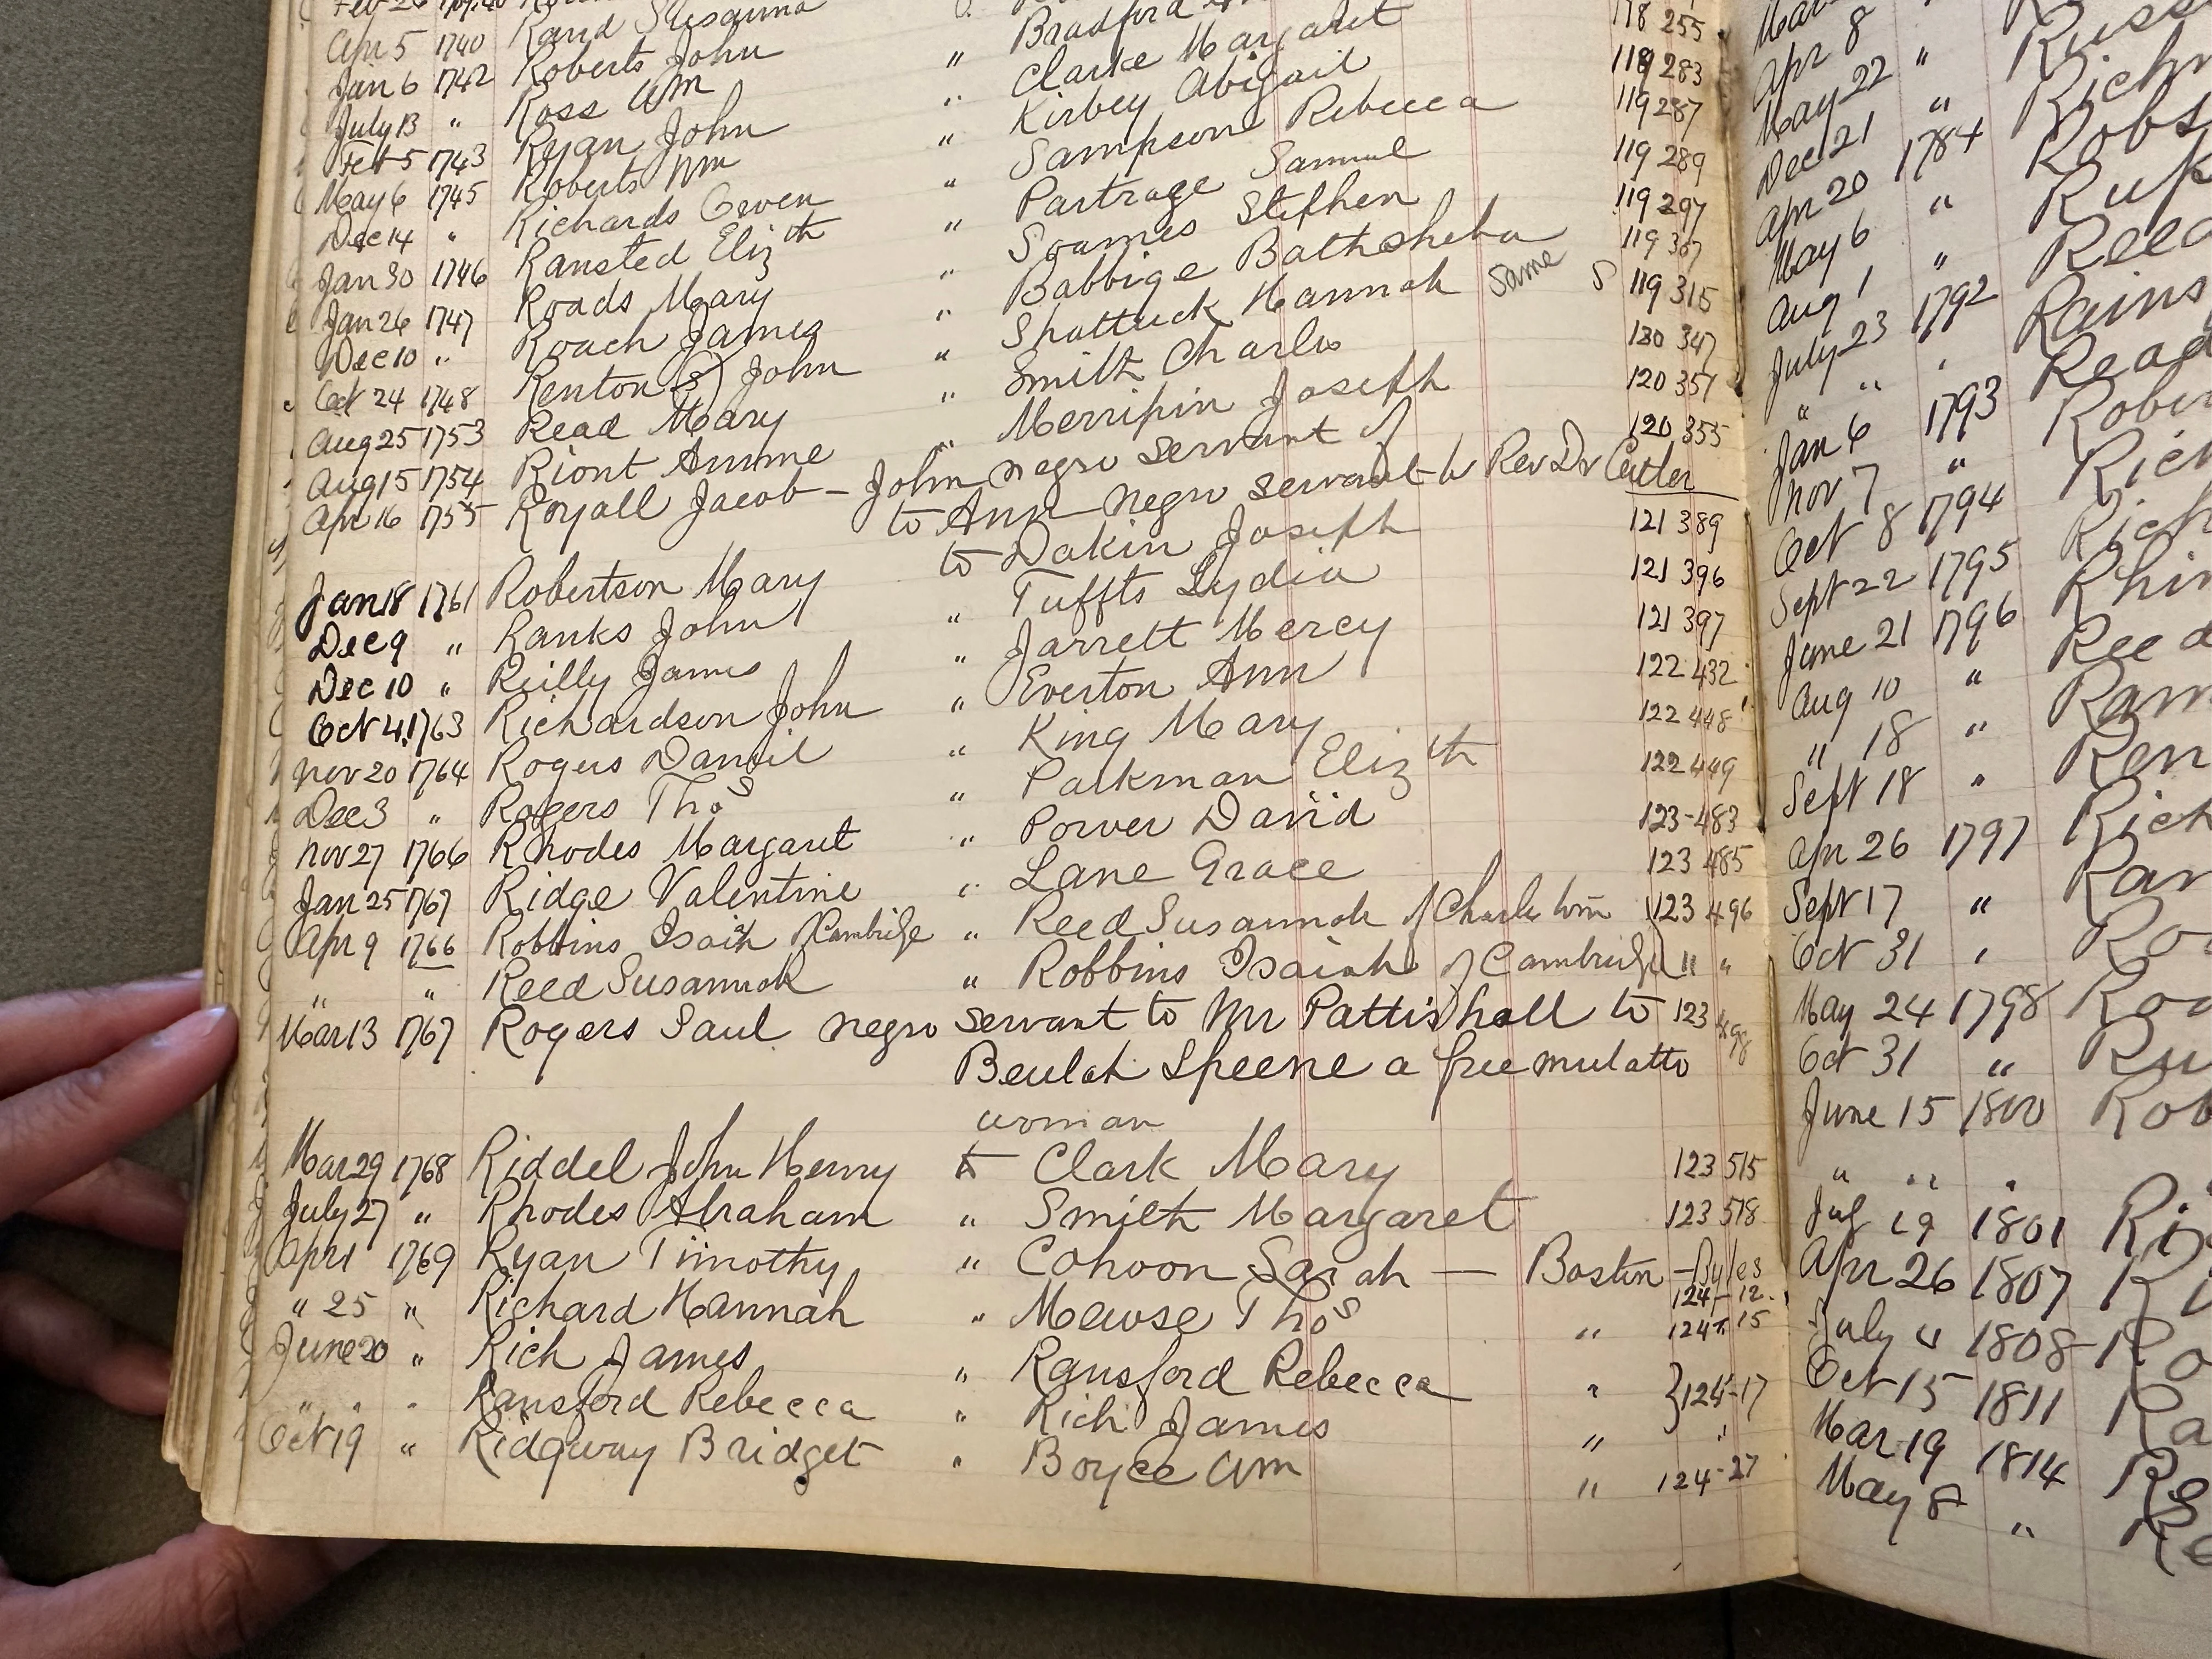 Apr 5 1740 Rand Susanna " Bradford 118 255
Jan 6 1742 Roberts John " Clarke Margaret 119 283
July 13 " Ross Wm " Kirbey Abigail 119 287
Feb 5 1743 Ryan John " Sampson Rebecca 119 289
May 6 1745 Roberts Wm " Partrage Samuel 119 297
Dec 14 " Richards Owen " Soames Stephen 119 307
Jan 30 1746 Ransted Eliz th " Babbige Bathsheba 119 315
Jan 26 1747 Roads Mary " Shattuck Hannah Same S 120 347
Dec 10 " Roach James " Smith Charles 120 351
Oct 24 1748 Renton (S) John " Merrifin Joseph 120 355
Aug 25 1753 Read Mary "
Aug 15 1754 Riont Amme
Apr 16 1755 Royall Jacob - John negro servant of Rev Dr Cutler
to Ann negro servant to 121 389
Jan 18 1761 Robertson Mary to Dakin Joseph 121 396
Dec 9 " Ranks John " Tuffts Lydia 121 397
Dec 10 " Reilly James " Jarrett Mercy 122 432
Oct 4 1763 Richardson John " Everton Ann 122 448
Nov 20 1764 Rogers Daniel " King Mary 122 449
Dec 3 " Rogers Thos " Parkman Eliz th 123-483
Nov 27 1766 Rhodes Margaret " Porver David 123 485
Jan 25 1767 Ridge Valentine " Lane Grace 123 496
Apr 9 1766 Robbins Isaih of Cambridge " Reed Susannah of Charles
" " Reed Susannah " Robbins Isaiah of Cambridge " "
Mar 13 1767 Rogers Saul negro servant to Mr Pattishall to 123 498
Beulah Speene a free mulatto
woman
Mar 29 1768 Riddel John Henry to Clark Mary 123 515
July 27 " Rhodes Abraham " Smith Margaret 123 518
Apr 1 1769 Ryan Timothy " Cohoon Sarah — Boston - Byles 124-12
" 25 " Richard Hannah " Mewse Thos " 124-15
June 20 " Rich James " Ransford Rebecca " } 124-17
" " Ransford Rebecca " Rich James " "
Oct 19 " Ridgway Bridget " Boyce Wm " 124-27
Apr 8 "
May 22 "
Dec 21
Apr 20 1784
May 6 "
Aug 1 "
July 23 1792 Rains
" " Read
Jan 6 1793
Nov 7 "
Oct 8 1794
Sept 22 1795
June 21 1796
Aug 10 "
" 18 "
Sept 18 "
Apr 26 1797
Sept 17 "
Oct 31 "
May 24 1798
Oct 31 "
June 15 1800
" " "
19 1801
Apr 26 1807
July 4 1808
Oct 15 1811
Mar 19 1814
May 8 "